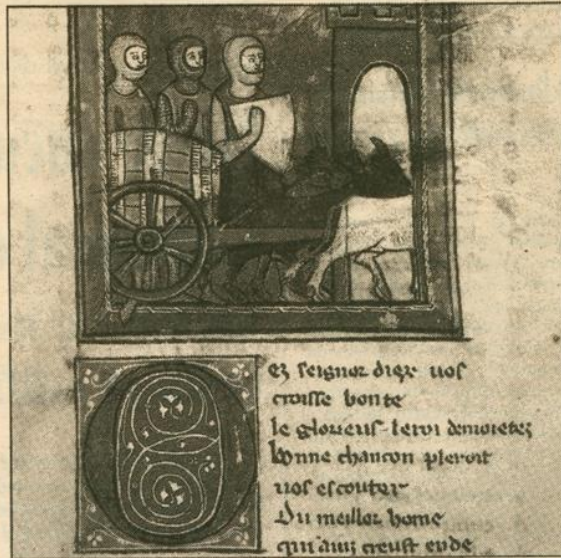 Oez seignor diex uos
croisse bonte
le glorieus leroi demaietez
bonne chancon pleroit
uos escouter
Du meillor home
creust ende